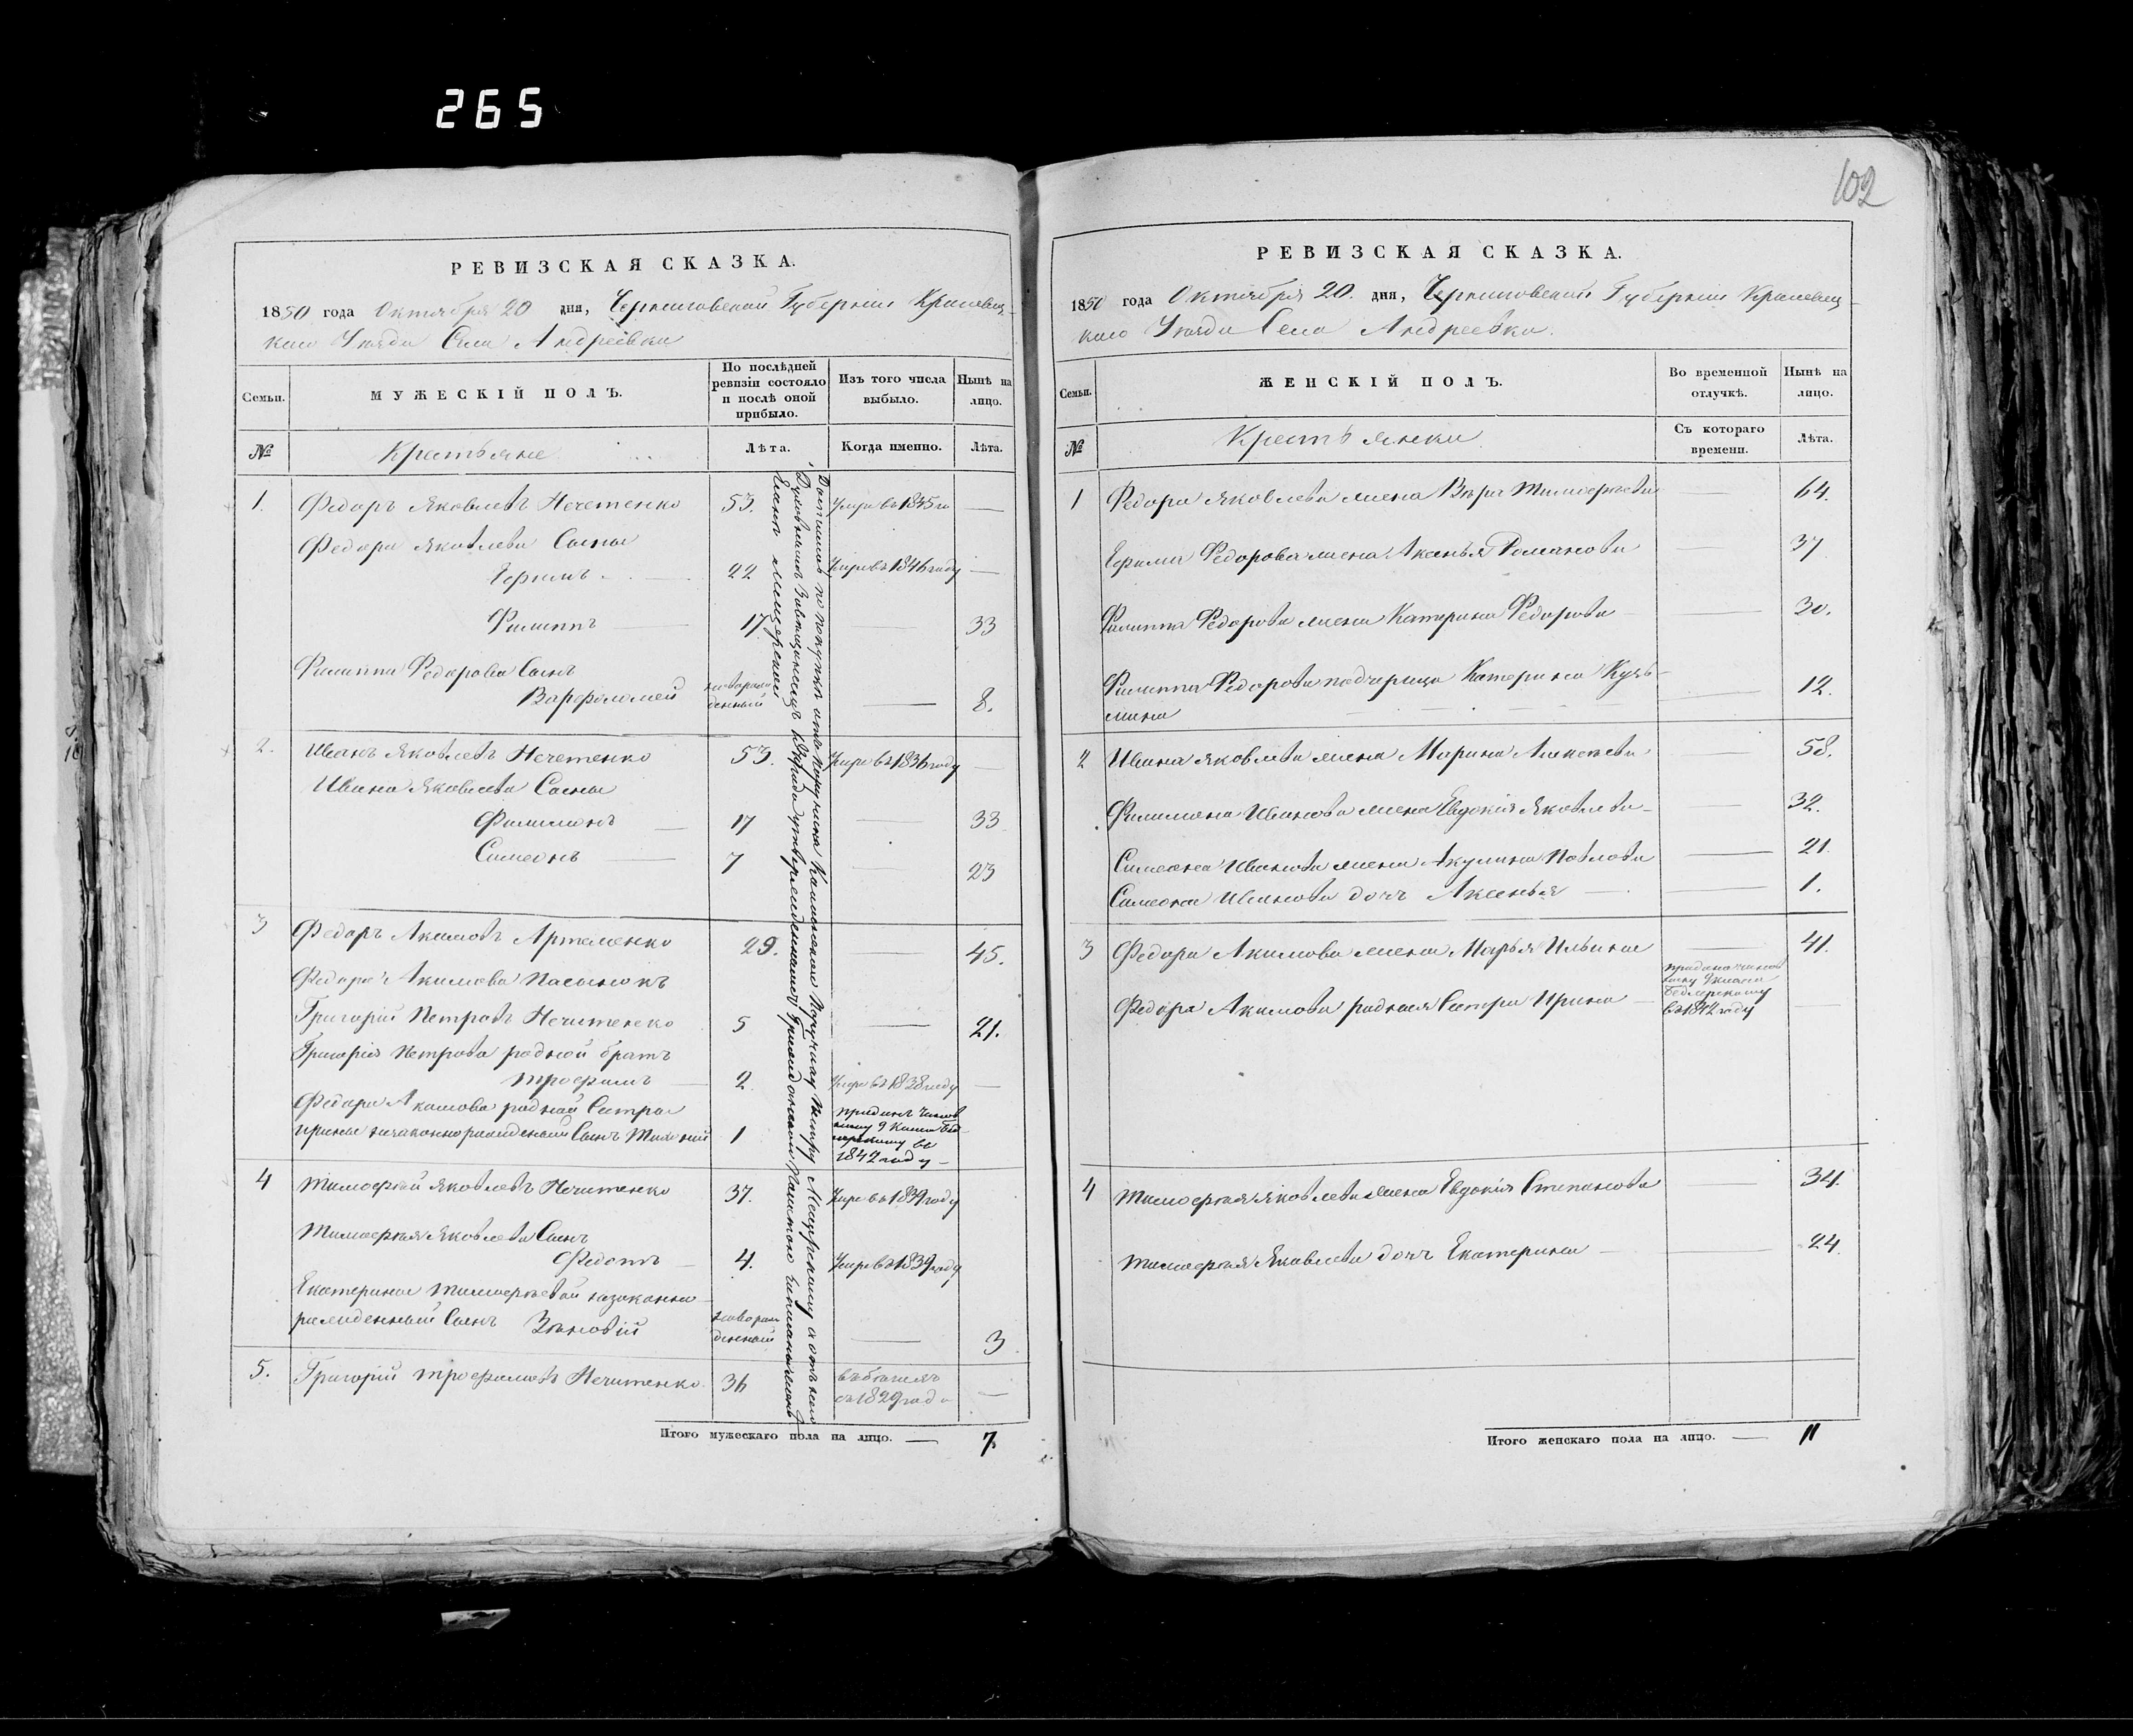 265
102
РЕВИЗСКАЯ СКАЗКА.
1850 года Октября 20 дня, Черниговской Губернии Кролевец-
каго Уѣзда Села Андреевки
Семьи.
МУЖЕСКІЙ ПОЛЪ.
По послѣдней ревизіи состояло и послѣ оной прибыло.
Изъ того числа выбыло.
Нынѣ на лицо.
№
Крестьяне
Лѣта.
Когда именно.
Лѣта.
1. Федоръ Яковлевъ Нечетенко 53. Умре въ 1835 го —
Федора Яковлева Сыны
Ефимъ 22 Умре въ 1846 году —
Филиппъ 17 — 33
Филиппа Федорова Сынъ
Варфоломей новорож
денный — 8.
2. Иванъ Яковлевъ Нечетенко 53. Умре въ 1836 году —
Ивана Яковлева Сыны
Филимонъ 17 — 33
Симеонъ 7 — 23
3 Федоръ Акимовъ Артеменко 29. — 45.
Федора Акимова Пасынокъ
Григорій Петровъ Нечитенко 5 — 21.
Григорія Петрова родной братъ
Трофимъ 2 Умре въ 1838 году —
Федора Акимова родной Сестры
Ирины незаконнорожденный Сынъ 1
1842 году
4 Тимофей Яковлевъ Нечитенко 37. Умре въ 1839 году
Тимофея Яковлева Сынъ
Федотъ 4. Умре въ 1839 году
Екатерины Тимофеевой незаконно
рожденный Сынъ Зѣновій новорож
денный — 3
5. Григорій Трофимовъ Нечитенко 36 въ бегахъ
съ 1829 года —
Итого мужескаго пола на лицо. — 7.
РЕВИЗСКАЯ СКАЗКА.
1850 года Октября 20. дня, Черниговской Губернии Кролевец-
каго Уѣзда Села Андреевки.
Семьи.
ЖЕНСКІЙ ПОЛЪ.
Во временной отлучкѣ.
Нынѣ на лицо.
№
Крестьянки
Съ котораго времени.
Лѣта.
1 Федора Яковлева жена Вѣра Тимофеева — 64.
Ефима Федорова жена Аксенья Романова 37
Филиппа Федорова жена Катерина Федорова — 30.
Филиппа Федорова подчерица Катерина Кузь-
мина — 12.
2 Ивана Яковлева жена Марина Алексеева — 58.
Филимона Иванова жена Евдокія Яковлева — 32.
Симеона Иванова жена Акулина Павлова — 21
Симеона Иванова дочь Аксенья — 1.
3 Федора Акимова жена Марья Ильина — 41.
Федора Акимова родная Сестра Ирина —
въ 1842 году
4 Тимофея Яковлева жена Евдокія Степанова — 34.
Тимофея Яковлева дочь Екатерина — 24
Итого женскаго пола на лицо. — 11